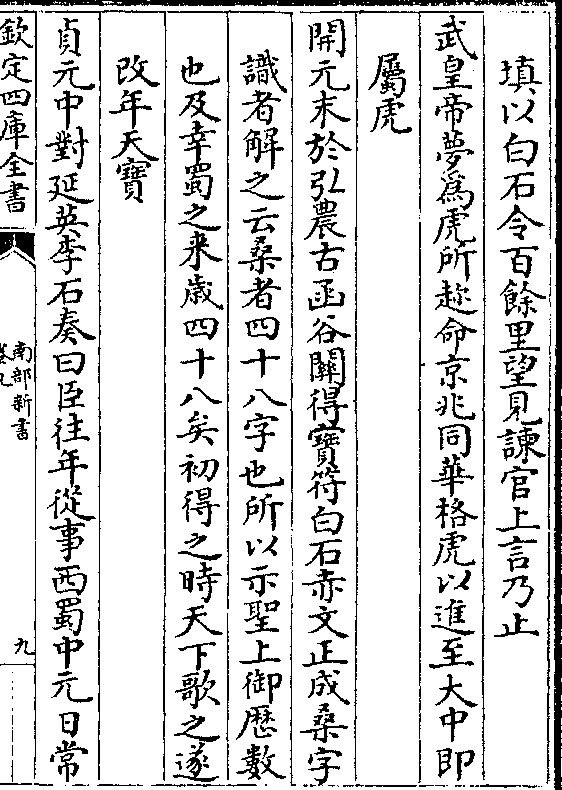 填以白石令百餘里望見諫官上言乃止
武皇帝夢為虎所趂命京兆同華格虎以進至大中即
屬虎
開元末於弘農古函谷關得寶符白石赤文正成桑字
識者解之云桑者四十八字也所以示聖上御歴數
也及幸蜀之来歳四十八矣初得之時天下歌之遂
改年天寶
貞元中對延英李石奏曰臣往年從事西蜀中元日常
欽定四庫全書
南部新書
九